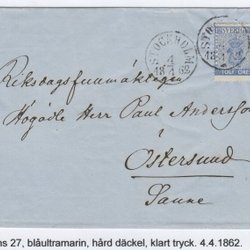 STOCKHOLM
SVERIGE
TOLF ÖRE
Riksdagsfullmäktigen
Högäde Herr Paul Andersson
á
Östersund
Sanne
ns 27, blåultramarin, hård däckel, klart tryck. 4.4.1862.